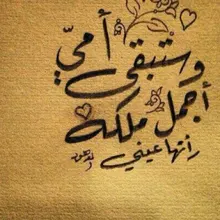 وستبقى أمّي
أجمل ملكه
رأتها عيني